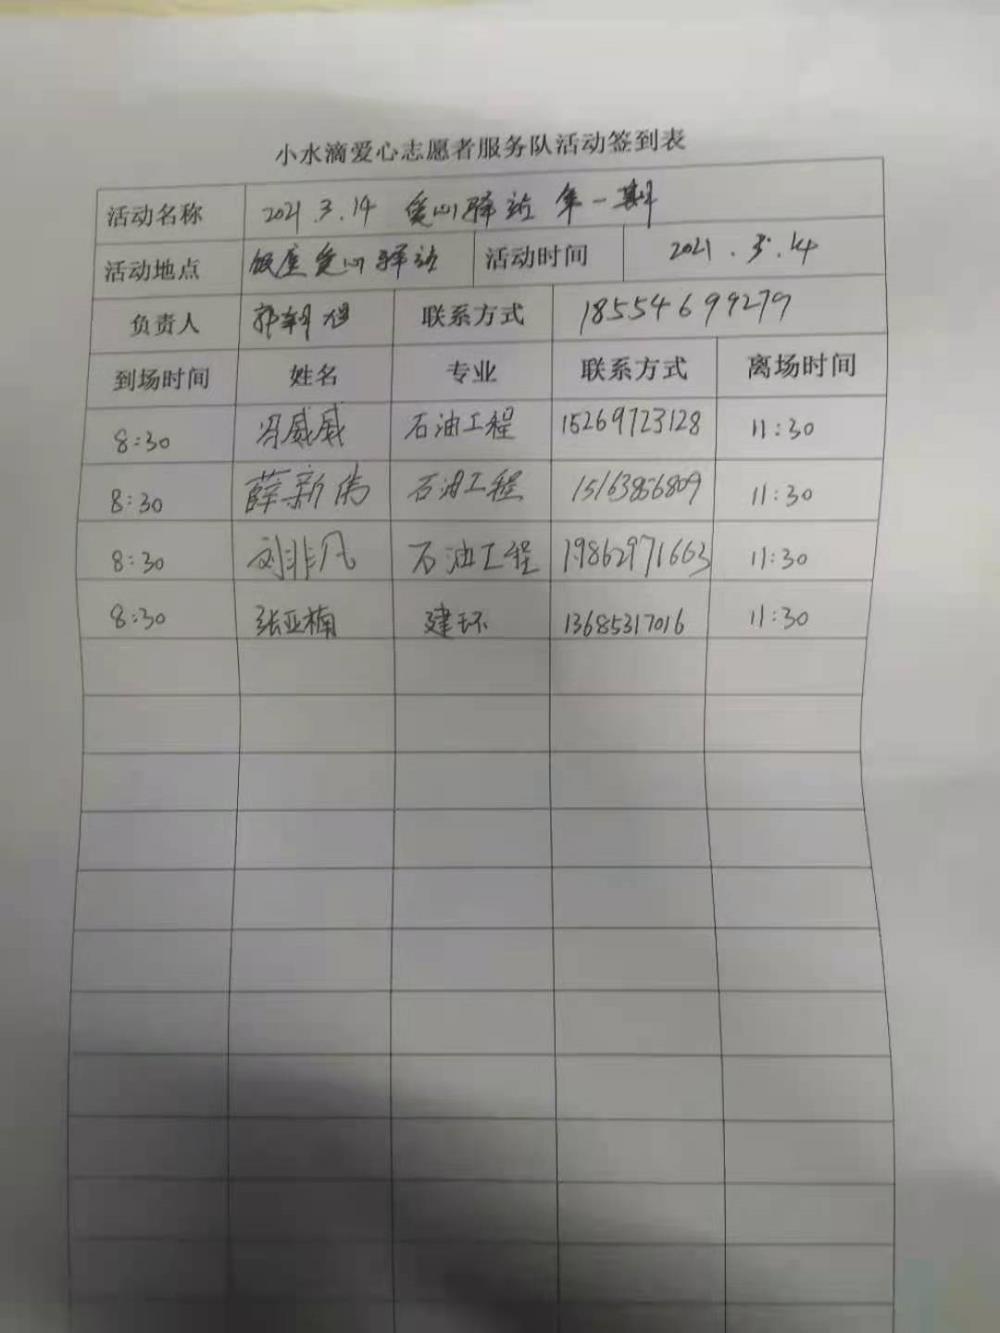 小水滴爱心志愿者服务队活动签到表
活动名称 2021.3.14 爱心驿站 第一期
活动地点 饭屋爱心驿站 活动时间 2021.3.14
负责人 郭翱旭 联系方式 18554699279
到场时间 姓名 专业 联系方式 离场时间
8:30 冯威威 石油工程 15269723128 11:30
8:30 薛新伟 石油工程 15163856809 11:30
8:30 刘非凡 石油工程 19862971663 11:30
8:30 张亚楠 建环 13685317016 11:30